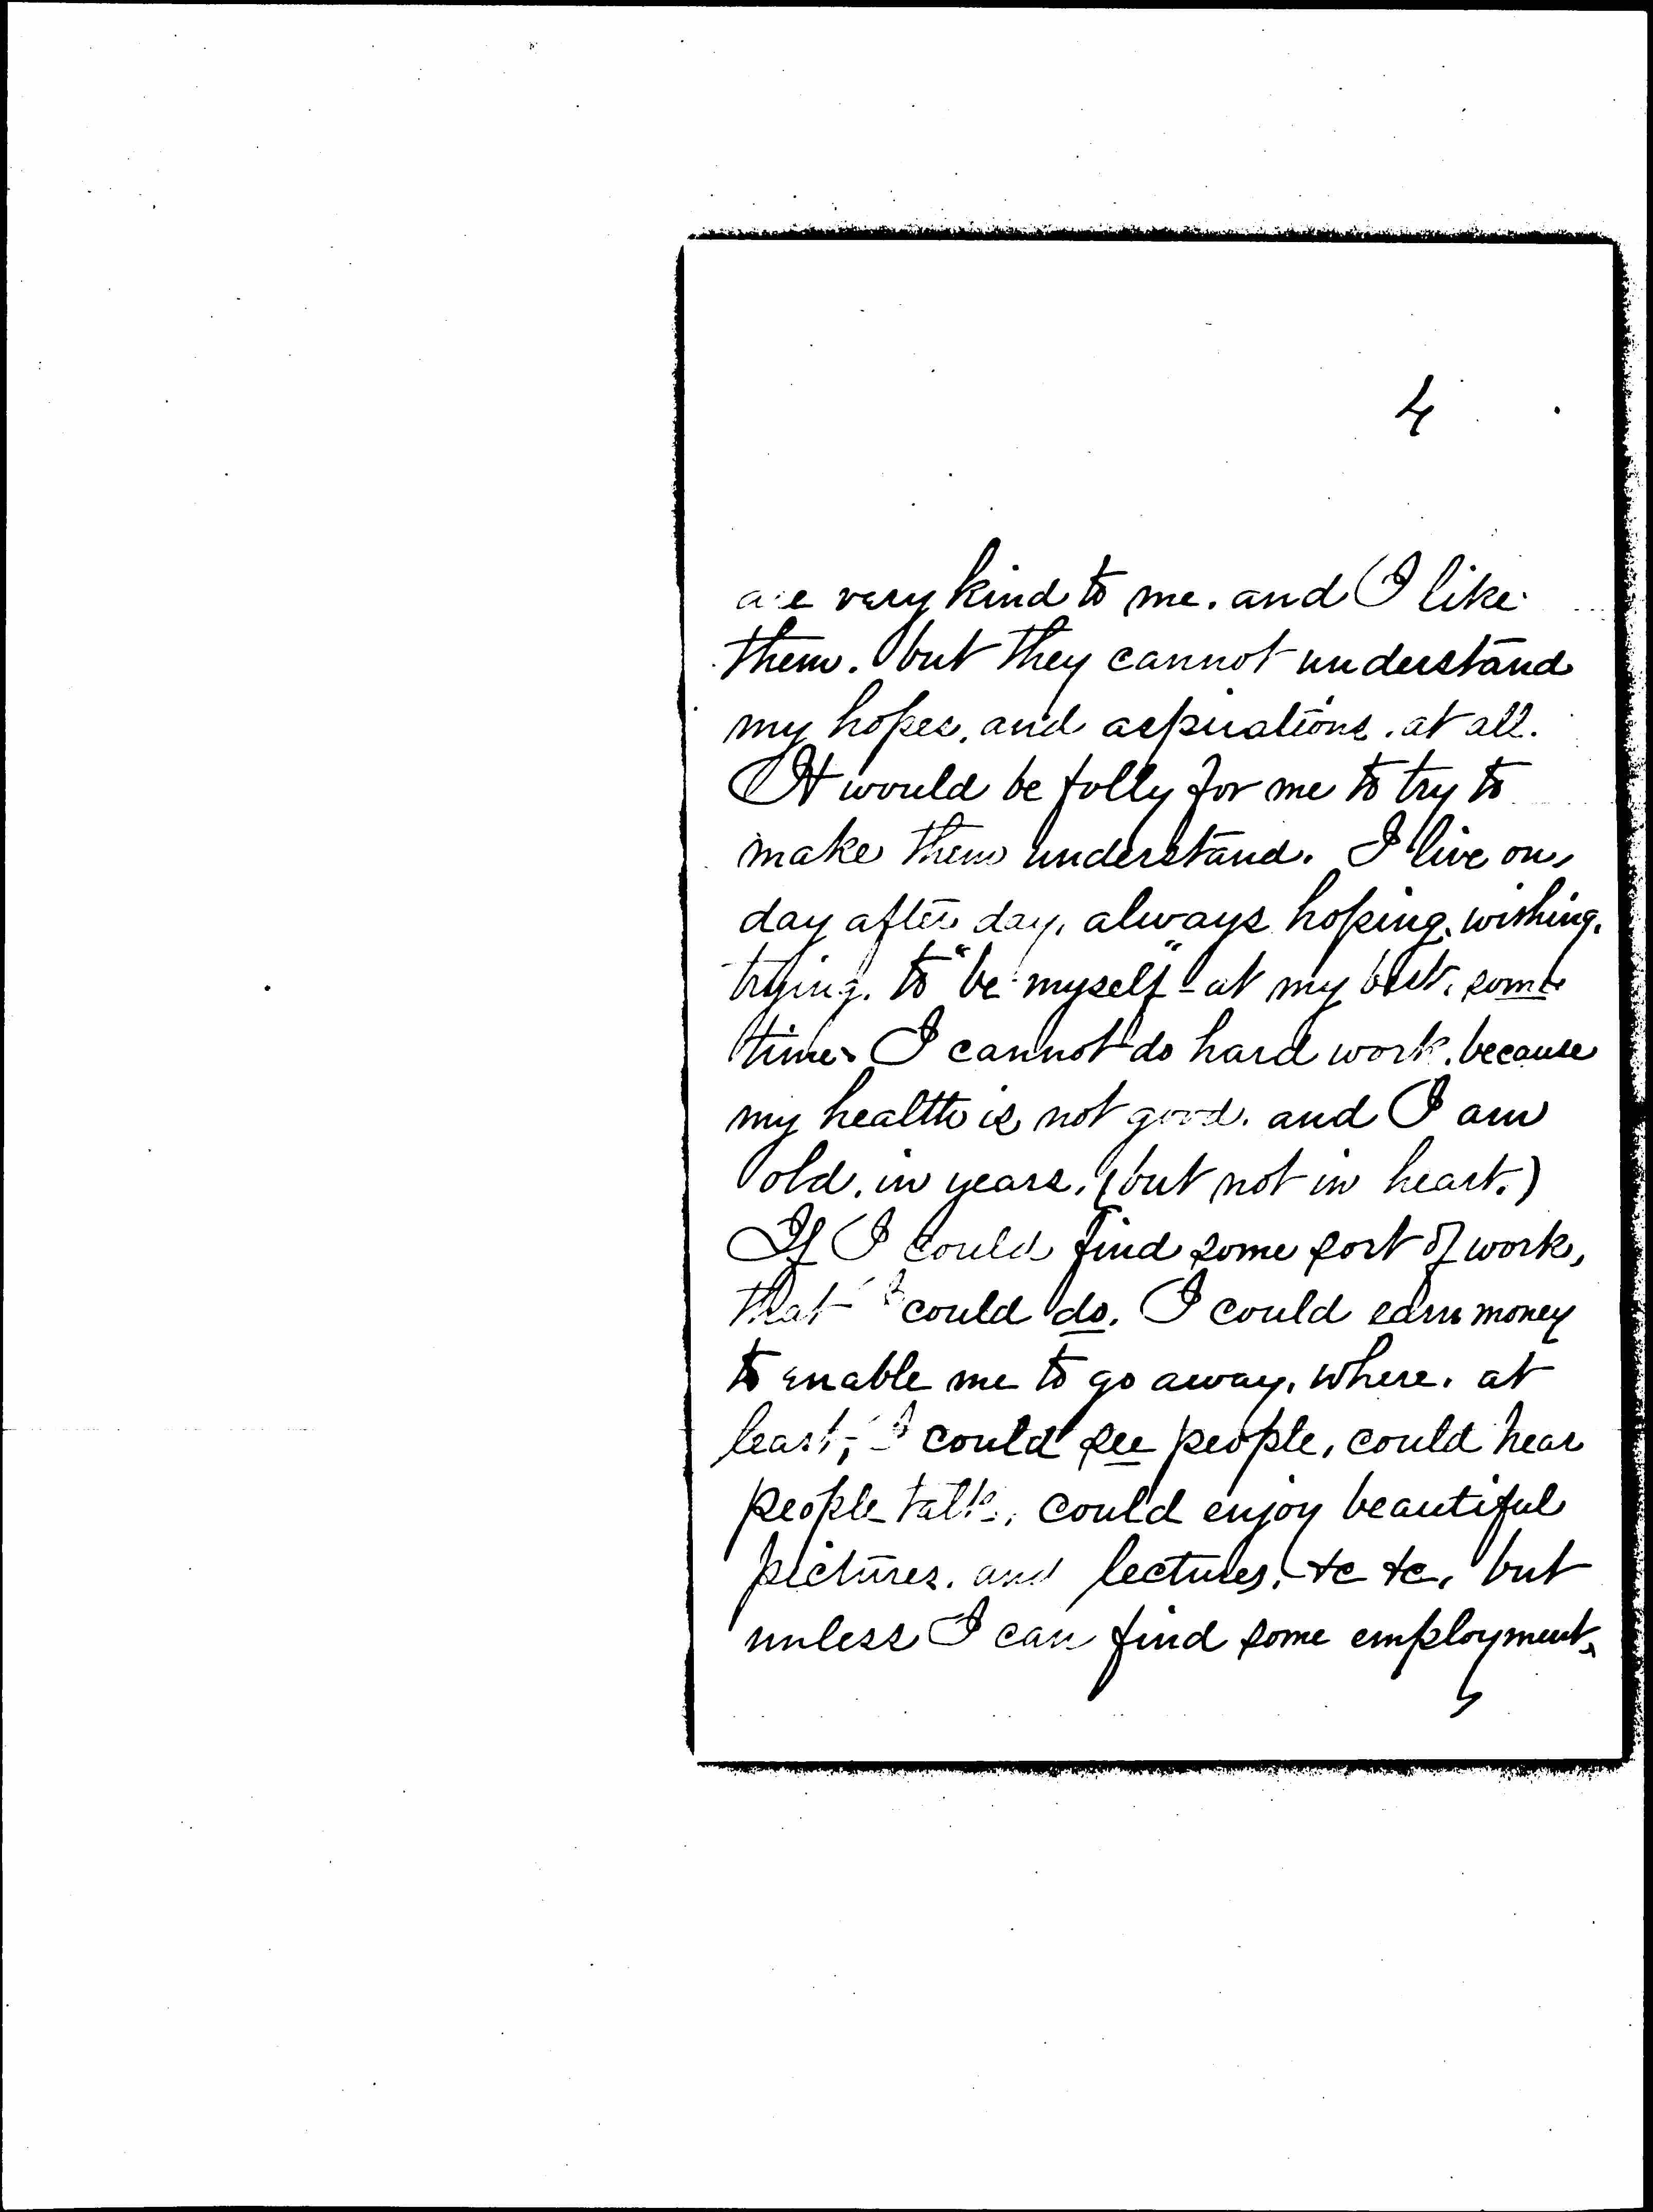 4
are very kind to me. and I like
them. but they cannot understand
my hopes, and aspirations. at all.
It would be folly for me to try to
make them understand. I live on,
day after day, always hoping, wishing,
trying. to "be myself" - at my best, some
time. I cannot do hard work, because
my health is not good. and I am
old, in years, (but not in heart.)
If I could find some sort of work,
that I could do. I could earn money
to enable me to go away, where, at
least, - I could see people, could hear
people talk, could enjoy beautiful
pictures, and lectures, &c &c, but
unless I can find some employment,